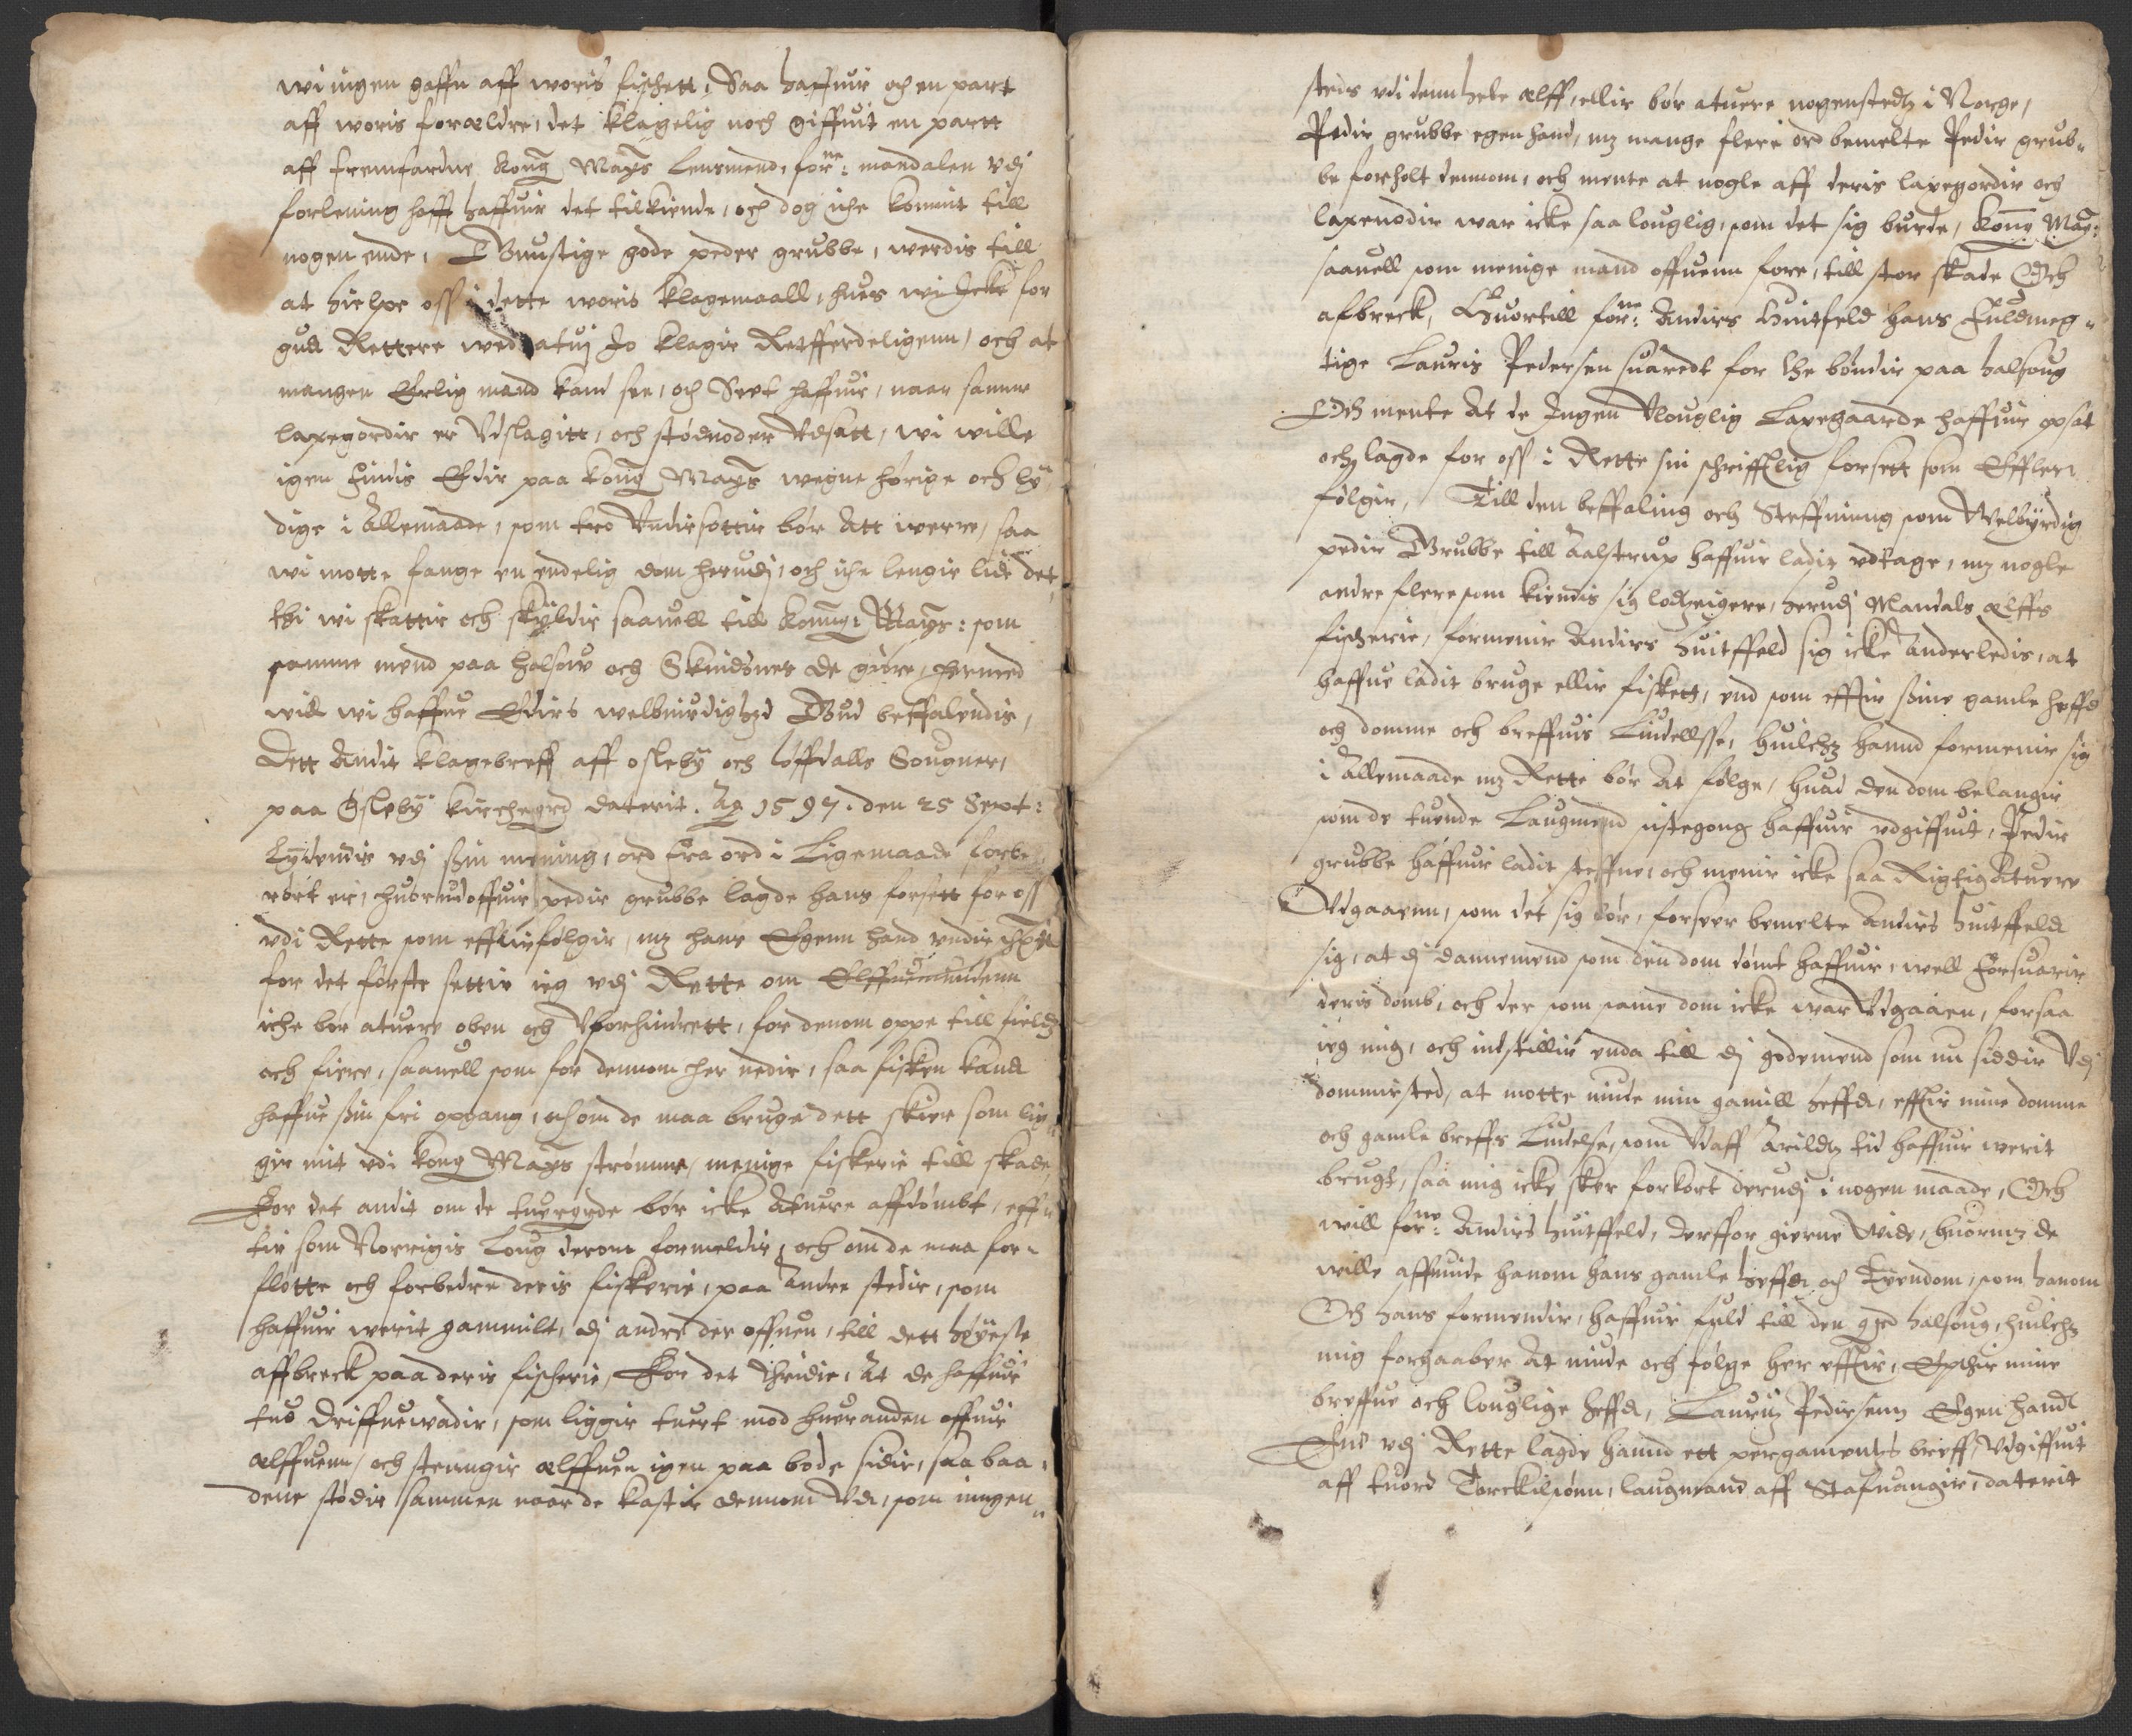 wi ingen gaffn aff woris fischett, Saa haffuir och en part
aff woris forældre, det klagelig noch giffuit en partt
aff fremfardne Kong Mayts Lensmend, forne: mandalen vdj
forlening hafft haffuir det tilkiende, och dog iche kommit till
nogen ende, Gunstige gode peder grubbe, werdis till
at hielpe oss i dette woris klagemaall, huis wi Icke for
gud Rettere wed atuj Jo klagir Retfferdeligenn, och at
mangen Erlig mand kand see, och Seet haffuir, naar samme
laxegordir er Vdslagitt, och stødnoder Vdsatt, wi wille
igen findis Edir paa kong Mayts wegne hørige och ly
dige i Allemaade, som tro Vndirsottir bør Att werre, saa
wi motte fange en endelig dom herudj, och iche lengir lide det,
thi wi skattir och skyldir saauell till Konng: Mayts: som
samme mend paa halsow och Skindsnes de giøre, hermed
wid wi haffue Edirs welbuirdighed Gud beffalendis,
Dett Andit klagebreff aff osleby och løffdalls Sougner,
paa Øsleby kirchegrd daterit. Ao 1597. den 25 Sept:
Lydendis vdj ssin mening, ord fra ord i Ligemaade forbe
rørt er, huorudoffuir pedir grubbe lagde hans forsett for oss
vdi Rette som effterfølgir, mz hans Egenn hand vndir
for det første settir ieg vdj Rette om Elffuemundenn
iche bør atuere oben och Vforhindrett, for denom oppe till field
och fiere, saauell som for dennom her nedir, saa fisken kand
haffue ssin fri opgang, och om de maa bruge dett skier som lig
gir mit vdi kong Mayts strømme, menige fiskerie till skade,
For det andit om de tuergrde bør icke Atuere affdømbt, eff
tir som Norrigis Loug derom formeldir, och om de maa for
fløtte och forbedre deris fiskerie, paa Andre stedir, som
haffuir werit gammilt, dj andre der offuen, till dett høyeste
affbreck paa deris fischerie, For det Thridie, At de haffuir
tuo Driffuewadir, som liggir tuert mod huerandin offuir
ælffuenn, och stenngir ælffuen igen paa bode sidir, saa baa
dene stødir sammen naar de kastir dennom Vd, som inngen
steds vdi denn hele ælff, ellir bør atuere nogenstedtz i Norge,
Pedir grubbe egen hand, mz mange flere ord bemelte Pedir grub
be forholt dennom, och mente at nogle aff deris laxegordir och
laxenodir war icke saa louglig, som det sig burde, Kong May:
saauell som menige mand offuenn fore, till stor skade Och
afbreck, Huortill forne: Andirs Huitfeld hans Fuldmeg
tige Lauris Pedersen suaredt for the bøndir paa halsoug
Och mente At de Ingen Vlouglig Laxegaarde haffuir opsat
och lagde for oss i Rette sin schrifftlig forsett som Effter
følgir, Till den beffaling och Steffning som Welbyrdig
pedir Grubbe till Aalstrup haffuir ladit vdtage, mz nogle
andre flere som kiendis sig lodtzeigere, herudj Mandals ælffs
fischerie, formenir Andirs huitffeld sig icke anderledis, at
haffue ladit bruge ellir fiskett, end som efftir ssine gamle heffd
och domme och breffuis Liudellsse, huilchz hannd formenir sig
i Allemaade mz Rette bør At følge, huad den dom belangir
som de tuende Laugmend sistegong haffuir vdgiffuit, Pedir
grubbe haffuir ladit steffne, och menir icke saa Rigtig Atuere
Vdgaaenn, som det sig bør, forseer bemelte Andirs huitffeld
sig, at dj dannemend som den dom dømt haffuir, well forsuarir
deris domb, och der som same dom icke war Vdgaaen, forsaa
ieg mig, och indstillir enda till dj godemend som nu siddir Vdj
dommirsted, at motte niude min gamill heffd, efftir mine domme
och gamle breffs Liudelse, som Vdaff Arildtz tid haffuir werit
brugt, saa mig icke sker forkort derudj i nogen maade, Och
will forne: Andirs huitffeld, derffor gierne Vide, huormz de
wille affuinde hanom hans gamle heffd och Eyendom, som hanom
Och hans formendir, haffuir fuld till den grd halsoug, huilchz
mig forhaaber At niude och følge her efftir, Epthir mine
breffue och louglige heffd, Lauritz Pedirsenn Egen Handt
End vdj Rette lagde hannd ett pergamentes breff Vdgiffuit
aff tuord Torckilsønn, laugmand aff Stafuangir, daterit